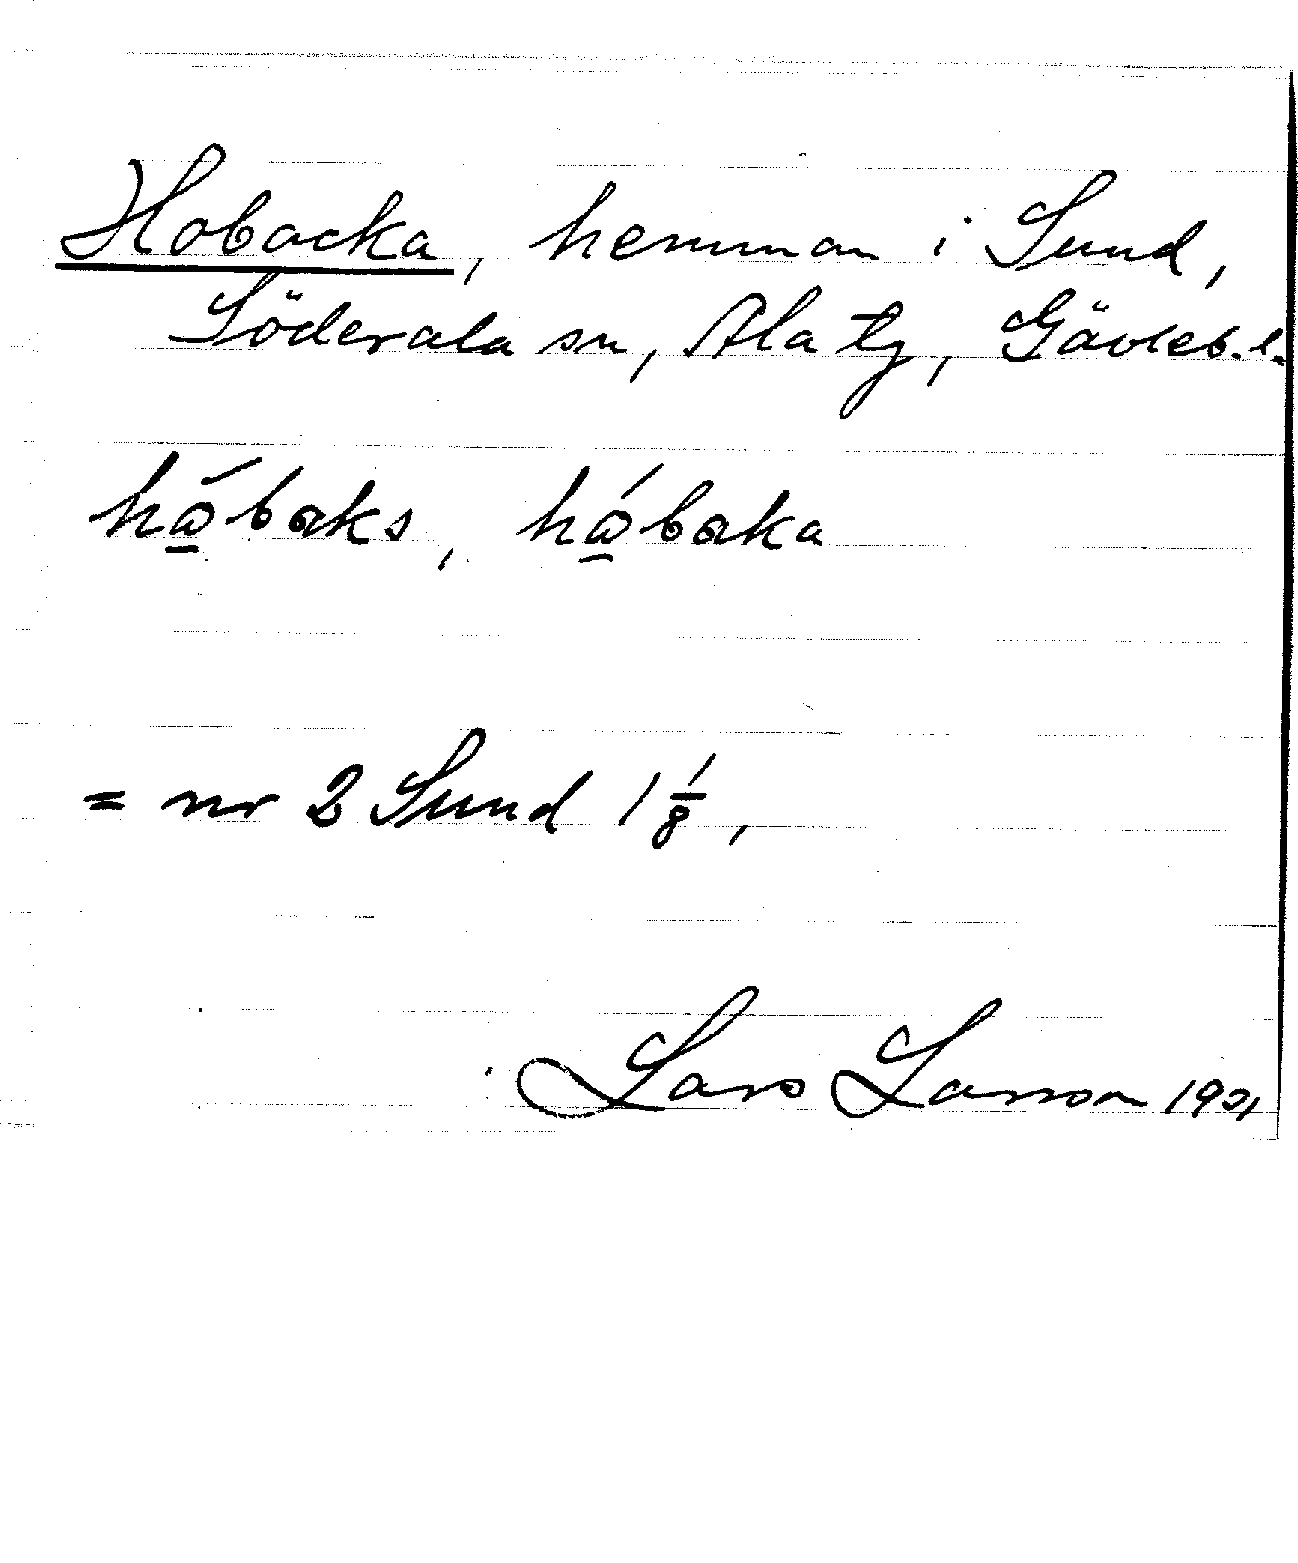 Hobacka, hemman i Sund,
Söderala sn, Ala tg, Gävleb. l.
hώ̱baks, hώ̱baka
= nr 2 Sund 1 1/8,
Lars Larsson 1901